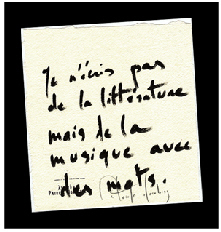 Je n'écris pas
de la littérature
mais de la
musique avec
des mots.